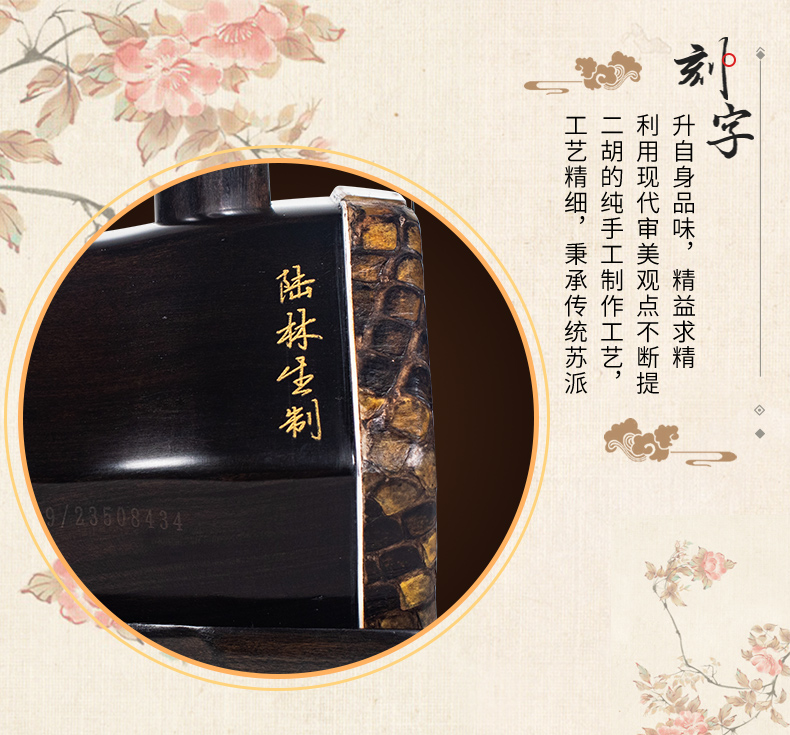 刻字
工艺精细，秉承传统苏派
二胡的纯手工制作工艺，
利用现代审美观点不断提
升自身品味，精益求精
陆林生制
9/23508434